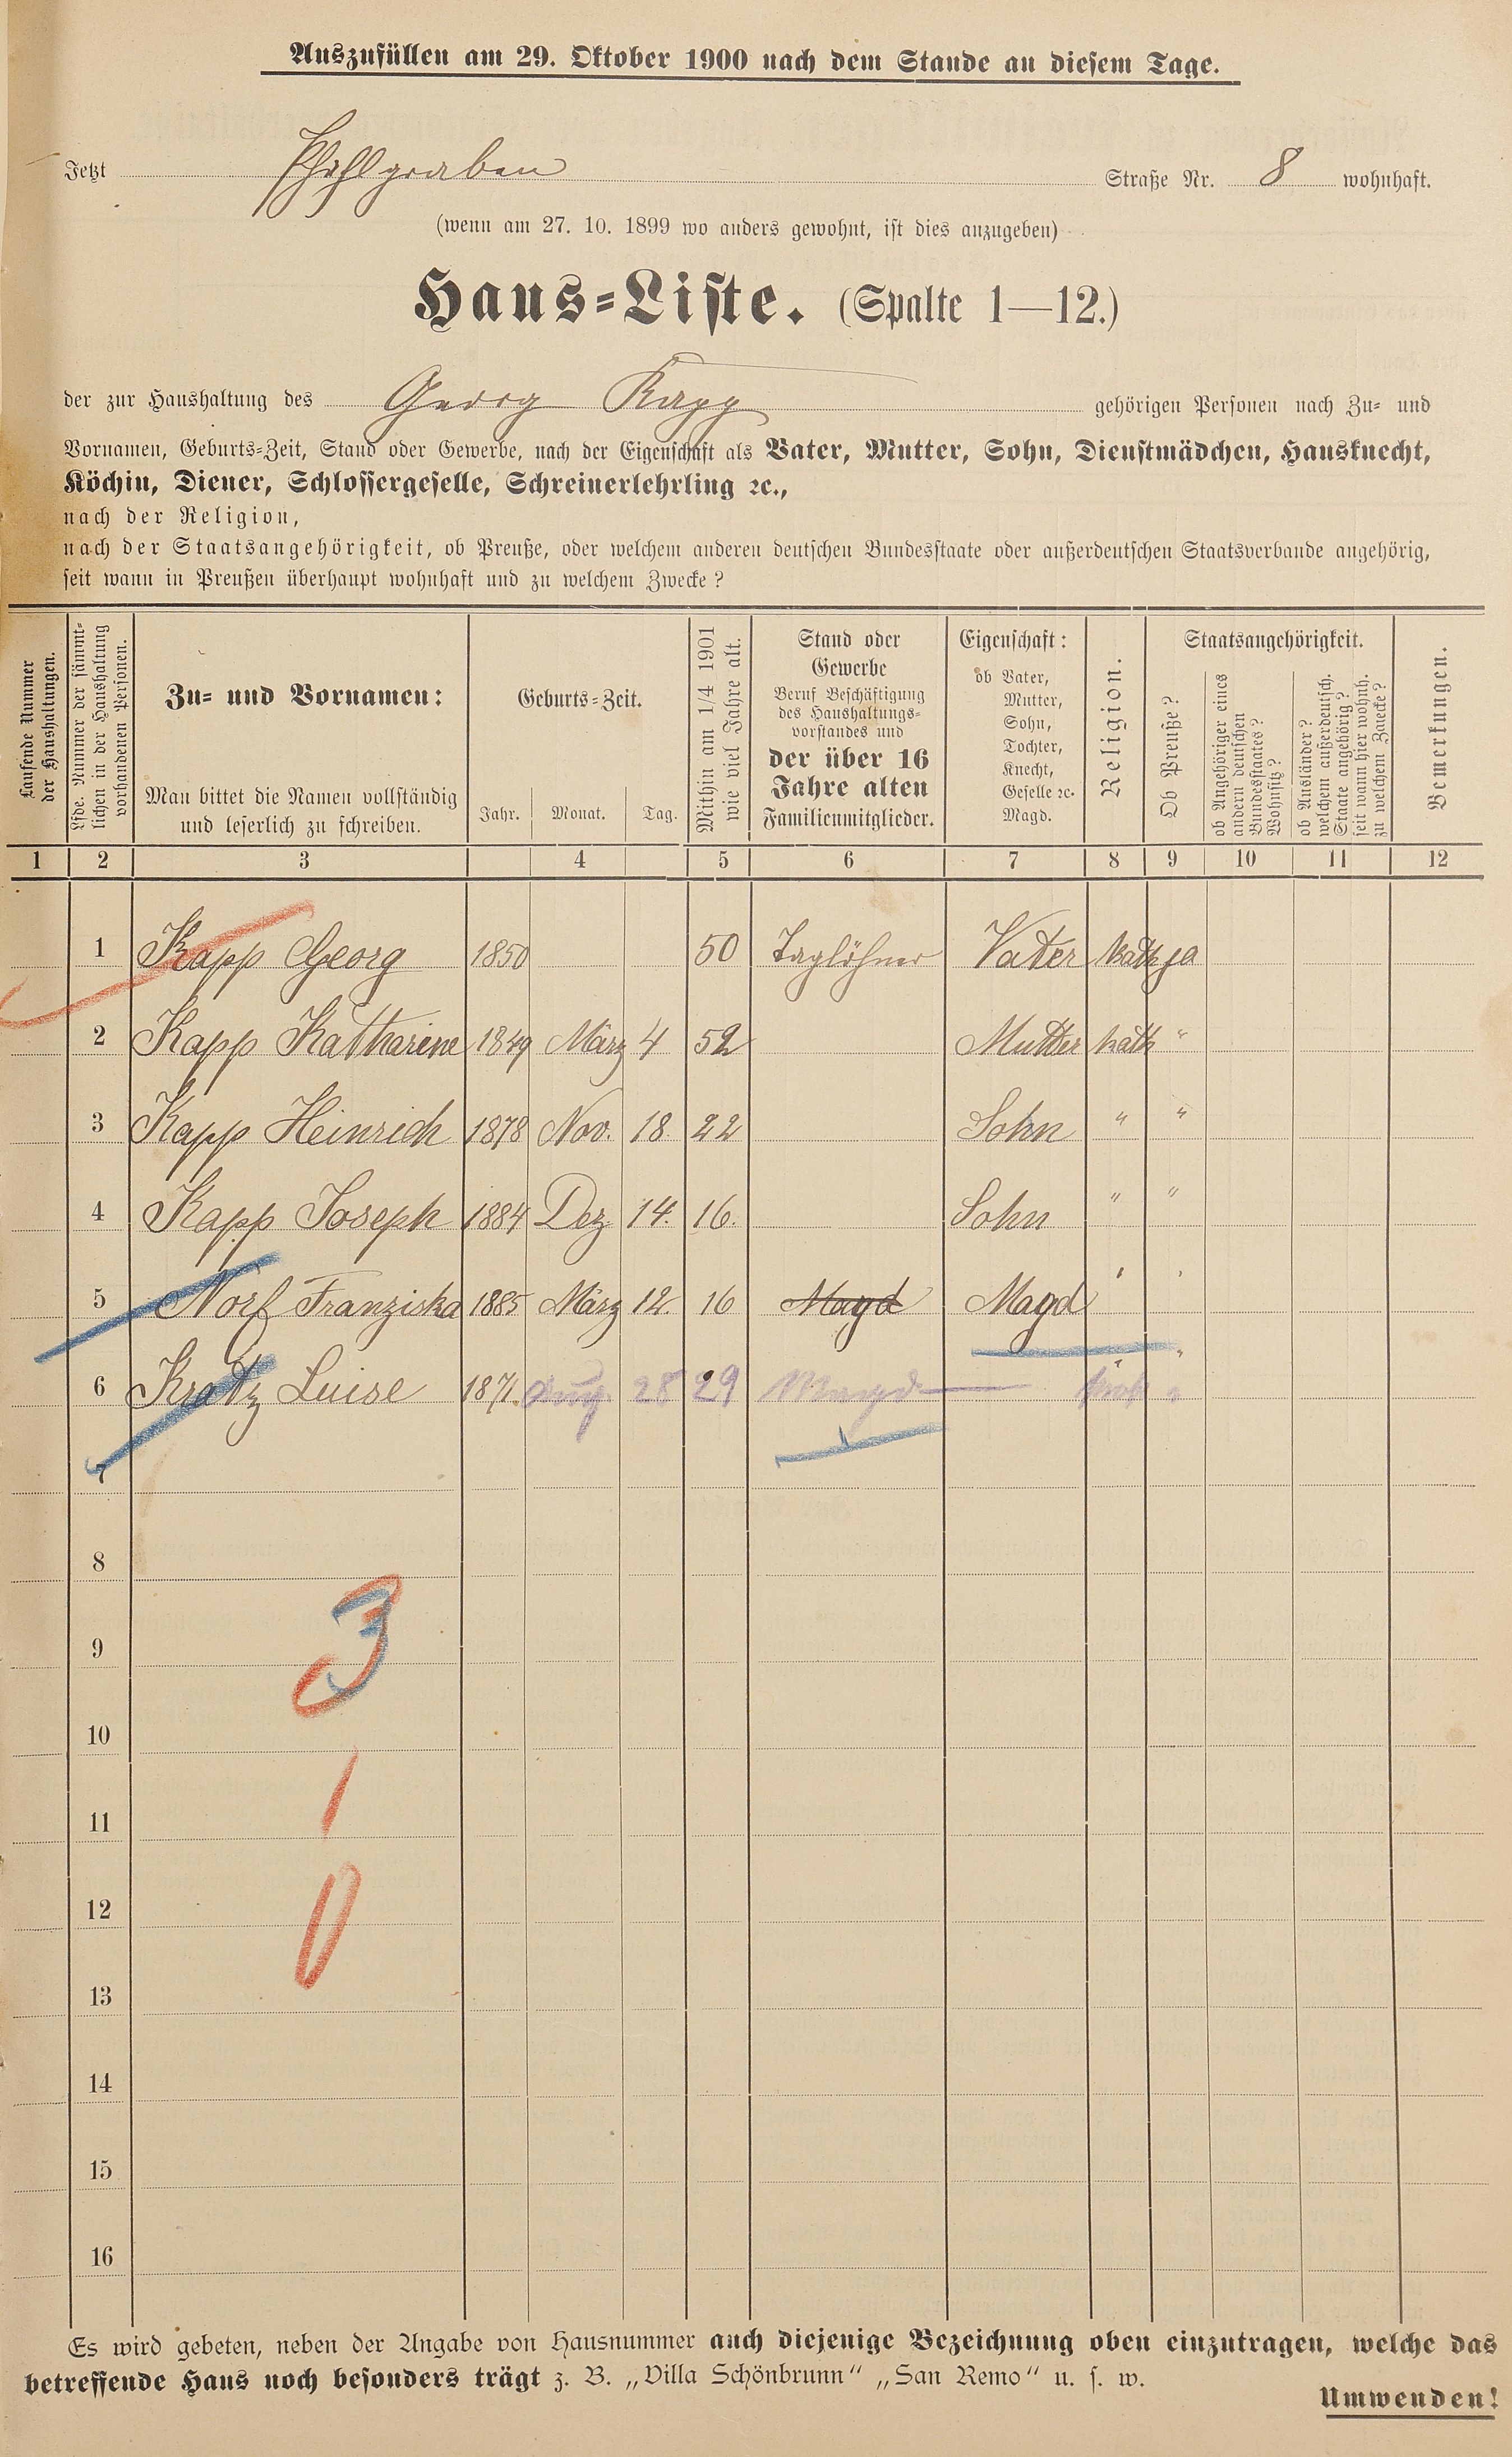 Auszufüllen am 29. Oktober 1900 nach dem Stande an diesem Tage.
Jetzt Pfahlgraben Straße Nr. 8 wohnhaft.
(wenn am 27. 10. 1899 wo anders gewohnt, ist dies anzugeben)
Haus-Liste. (Spalte 1—12.)
der zur Haushaltung des Georg Kapp gehörigen Personen nach Zu- und
Vornamen, Geburts-Zeit, Stand oder Gewerbe, nach der Eigenschaft als Vater, Mutter, Sohn, Dienstmädchen, Hausknecht,
Köchin, Diener, Schlossergeselle, Schreinerlehrling ꝛc.,
nach der Religion,
nach der Staatsangehörigkeit, ob Preuße, oder welchem anderen deutschen Bundesstaate oder außerdeutschen Staatsverbande angehörig,
seit wann in Preußen überhaupt wohnhaft und zu welchem Zwecke?
Laufende Nummer
der Haushaltungen.
Lfde. Nummer der sämmt-
lichen in der Haushaltung
vorhandenen Personen.
Zu- und Vornamen:
Man bittet die Namen vollständig
und leserlich zu schreiben.
Geburts-Zeit.
Jahr. Monat. Tag.
Mithin am 1/4 1901
wie viel Jahre alt.
Stand oder
Gewerbe
Beruf Beschäftigung
des Haushaltungs-
vorstandes und
der über 16
Jahre alten
Familienmitglieder.
Eigenschaft:
ob Vater,
Mutter,
Sohn,
Tochter,
Knecht,
Geselle ꝛc.
Magd.
Religion.
Staatsangehörigkeit.
Ob Preuße?
ob Angehöriger eines
andern deutschen
Bundesstaates?
Wohnsitz?
ob Ausländer?
welchem außerdeutsch.
Staate angehörig?
seit wann hier wohnh.
zu welchem Zwecke?
Bemerkungen.
1 2 3 4 5 6 7 8 9 10 11 12
1 Kapp Georg 1850 50 Taglöhner Vater kath ja
2 Kapp Katharine 1849 März 4 52 Mutter kath "
3 Kapp Heinrich 1878 Nov. 18. 22 Sohn " "
4 Kapp Joseph 1884 Dez 14. 16. Sohn " "
5 Norf Franziska 1885 März 12. 16 Magd Magd " "
6 Kratz Luise 1871. Aug. 28 29 Magd "
7
8
3
9
10
1
11
0
12
13
14
15
16
Es wird gebeten, neben der Angabe von Hausnummer auch diejenige Bezeichnung oben einzutragen, welche das
betreffende Haus noch besonders trägt z. B. „Villa Schönbrunn" „San Remo" u. s. w.
Umwenden!